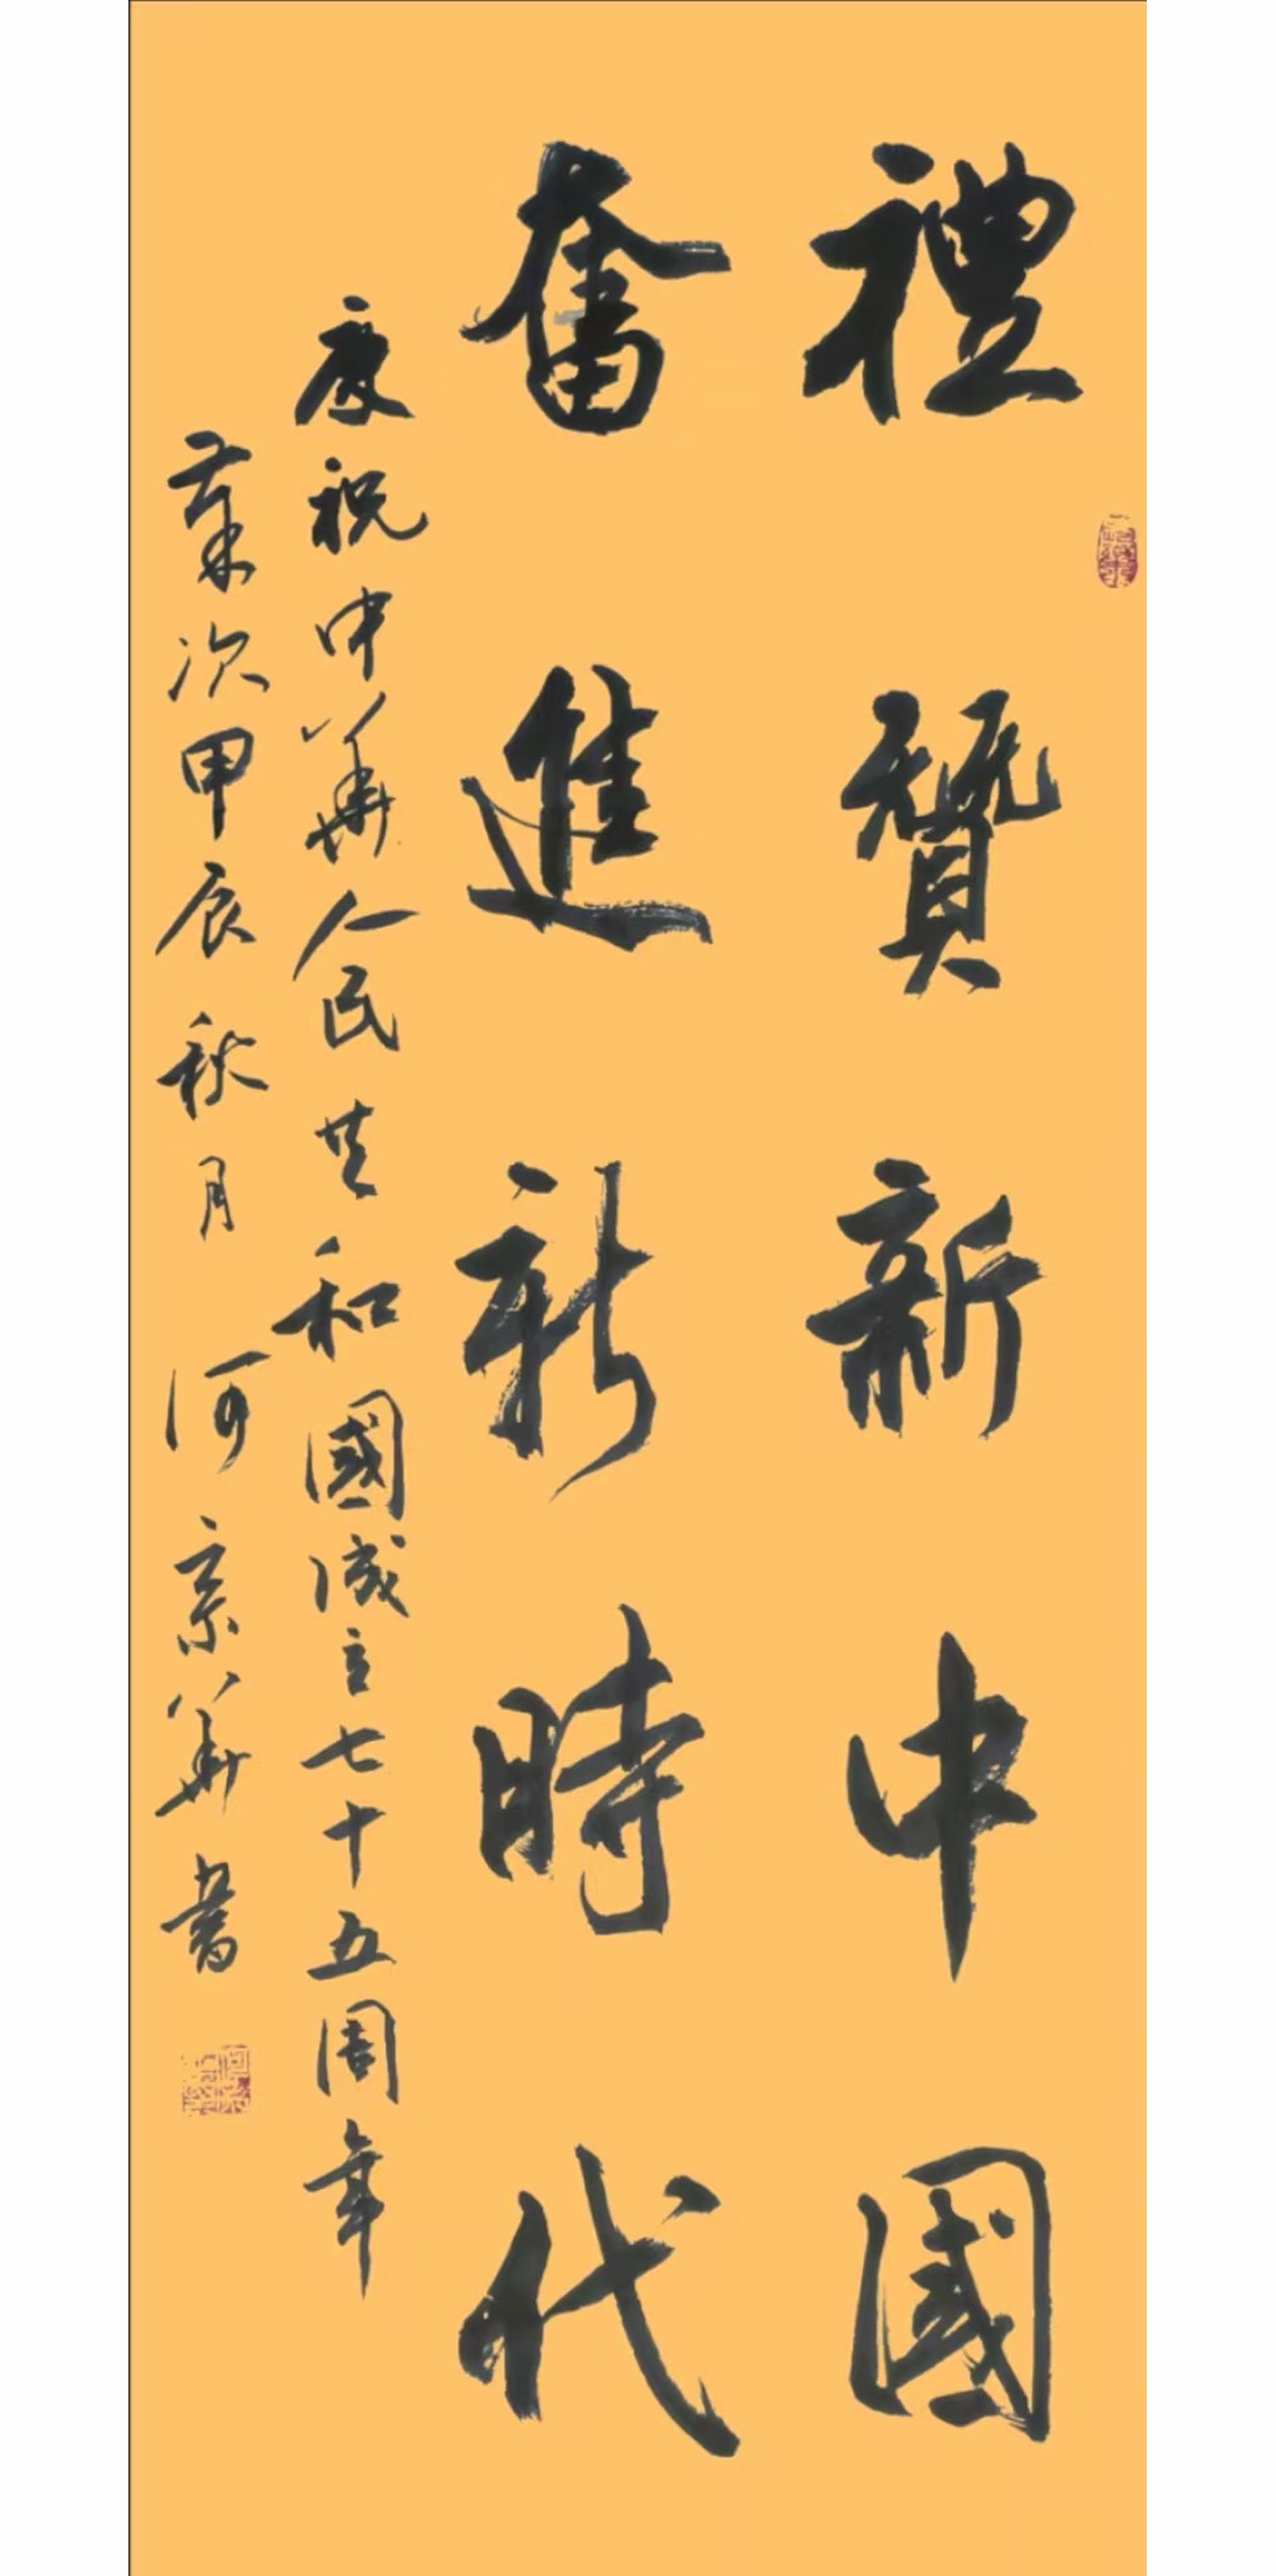 禮贊新中國
奮進新時代
慶祝中華人民共和國成立七十五周年
歲次甲辰秋月 何京華書